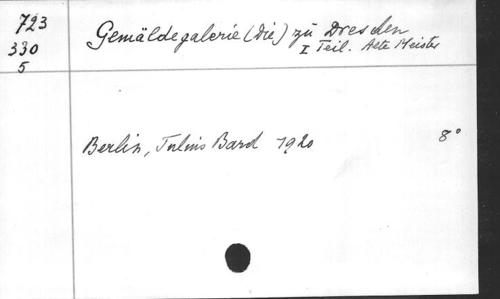 723
330
5
Gemäldegalerie (Die) zu Dresden
I Teil. Alte Meister
Berlin, Julius Bard 1920 8°